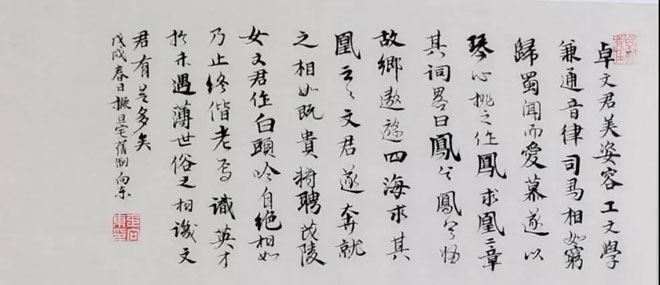 卓文君美姿容工文學
兼通音律司馬相如窮
歸蜀聞而愛慕遂以
琴心挑之作鳳求凰二章
其詞畧曰鳳兮鳳兮歸
故鄉遨遊四海求其
凰云云文君遂奔就
之相如既貴將聘茂陵
女文君作白頭吟自絕相如
乃止終偕老焉識英才
於未遇薄世俗之相譏文
君有是多矣
戊戌春日撫旦宅舊制向東